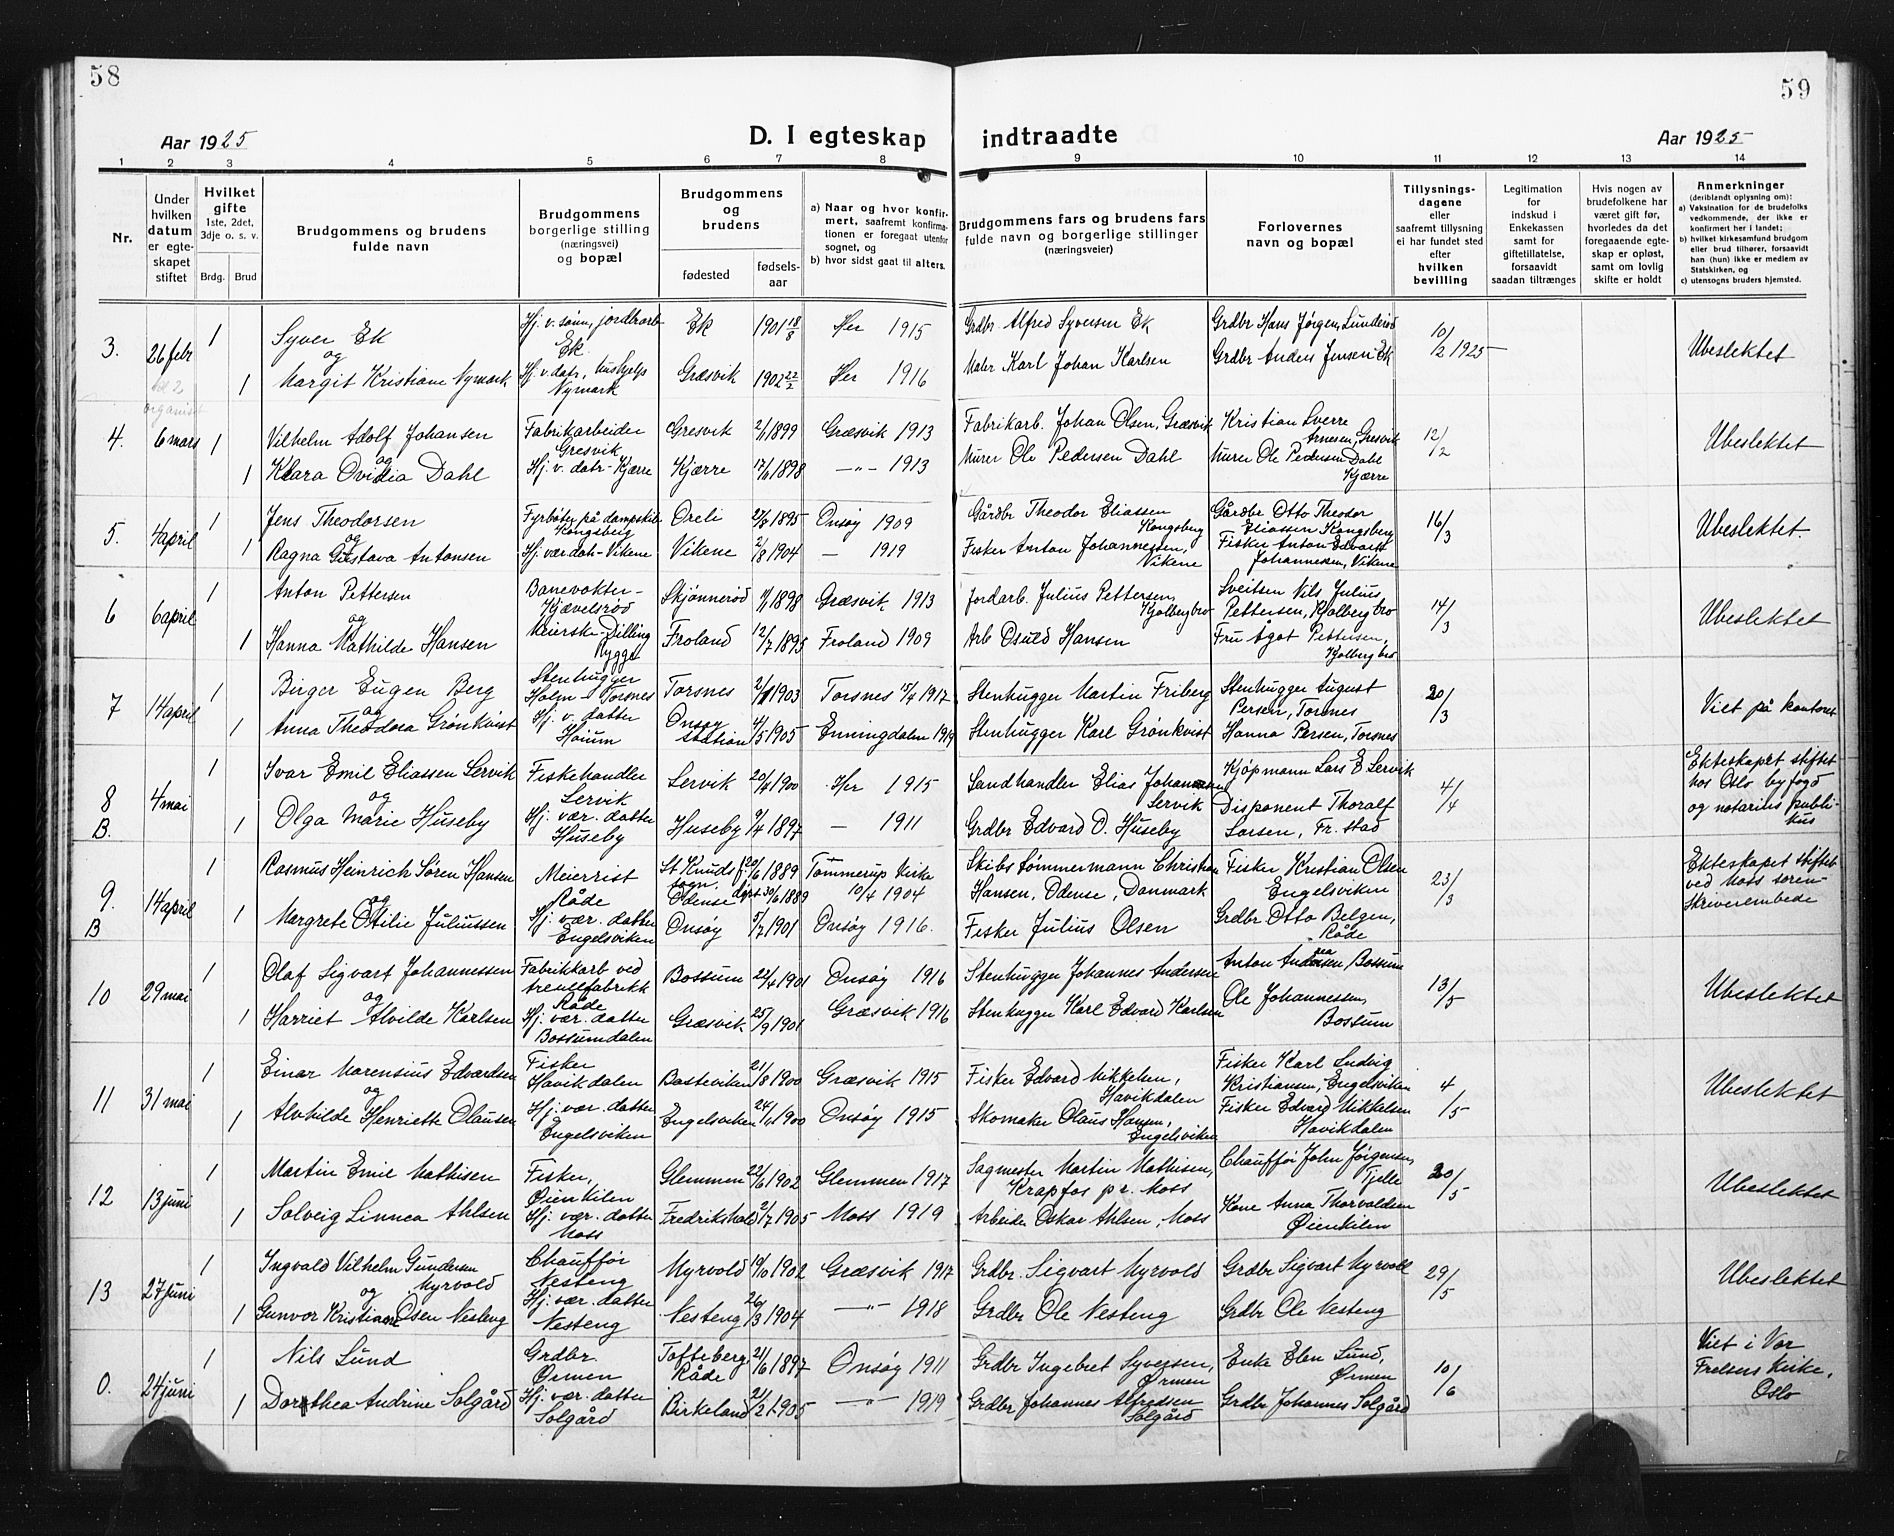 58
59
Aar 1925
D. I egteskap indtraadte
Aar 1925
1 2 3 4 5 6 7 8 9 10 11 12 13 14
Nr.
Under hvilken datum er egteskapet stiftet
Hvilket gifte 1ste, 2det, 3dje o. s. v.
Brdg. Brud
Brudgommens og brudens fulde navn
Brudgommens borgerlige stilling (næringsvei) og bopæl
Brudgommens og brudens
fødested
fødsels-aar
a) Naar og hvor konfirmert, saafremt konfirmationen er foregaat utenfor sognet, og
b) hvor sidst gaat til alters.
Brudgommens fars og brudens fars fulde navn og borgerlige stillinger (næringsveier)
Forlovernes navn og bopæl
Tillysningsdagene eller saafremt tillysning ei har fundet sted efter hvilken bevilling
Legitimation for indskud i Enkekassen samt for giftetillatelse, forsaavidt saadan tiltrænges
Hvis nogen av brudefolkene har været gift før, hvorledes da det foregaaende egteskap er opløst, samt om lovlig skifte er holdt
Anmerkninger (deriblandt oplysning om):
a) Vaksination for de brudefolks vedkommende, der ikke er konfirmert her i landet;
b) hvilket kirkesamfund brudgom eller brud tilhører, forsaavidt han (hun) ikke er medlem av Statskirken, og
c) utensogns bruders hjemsted.
3. 26 febr 1 Syver Ek Hj. v. sønn, jordbrarb Ek. Ek 1901 18/8 Her 1915 Grdbr. Alfred Syversen Ek Grdbr Hans Jørgen, Lunderød 10/2 1925 Ubeslektet
og
1 Margit Kristiane Nymark Hj. v. datr, hushjelp Nymark Græsvik 1902 22/2 Her 1916 Maler Karl Johan Karlsen Grdbr Anders Jensen Ek
organist
4. 6 mars 1 Vilhelm Adolf Johansen Fabrikarbeider Gresvik Gresvik 2/1 1899 Græsvik 1913 Fabrikarb. Johan Olsen, Græsvik Kristian Sverre Arnesen, Gresvik 12/2 Ubeslektet
og
1 Klara Ovidia Dahl Hj. v. datr - Kjærre Kjærre 17/6 1898 -"- 1913 Murer Ole Pedersen Dahl Murer Ole Pedersen Dahl Kjærre
5. 4 april 1 Jens Theodorsen Fyrbøter på dampskib Kongsberg Oreli 27/8 1895 Onsøy 1909 Gårdbr Theodor Eliassen Kongsberg Gårdbr Otto Theodor Eliassen Kongsberg 16/3 Ubeslektet.
og
1 Ragna Gustava Antonsen Hj. vær. datr - Vikene Vikene 2/8 1904 — 1919 Fisker Anton Johannessen, Vikene Fisker Anton Edvart Johannesen, Vikene
6 6 april 1 Anton Pettersen Banevokter - Kjævelsrød Skjønnerød 11/1 1898 Græsvik 1913 Jordarb. Julius Pettersen, Kjølbergbro Sveitser Nils Julius Pettersen, Kjølberg bro 14/3 Ubeslektet
og
1 Hanna Mathilde Hansen Meierske - Dilling Rygge Froland 12/7 1895 Froland 1909 Arb Osuld Hansen Fru Ågot Pettersen, Kjølberg bro
7 14 april 1 Birger Eugen Berg Stenhugger Holm - Torsnes Torsnes 2/11 1903 Torsnes 15/4 1917 Stenhugger Martin Friberg Stenhugger August Persen, Torsnes 20/3 Viet på kontoret
og
1 Anna Theodora Grönkvist Hj. v. datter Høium Onsøy station 4/5 1905 Enningdalen 1919 Stenhugger Karl Grönkvist Hanna Persen, Torsnes
8 B. 4 mai 1 Ivar Emil Eliassen Lervik Fiskehandler Lervik Lervik 20/4 1900 Her 1915 Landhandler Elias Johannesen Lervik Kjøpmann Lars E Lervik 4/4 Ekteskapet stiftet hos Oslo byfogd og notarius publikus
og
1 Olga Marie Huseby Hj. vær. datter Huseby Huseby 9/4 1897 — 1911 Grdbr Edvard O. Huseby Disponent Thoralf Larsen, Fr.stad
9. B 14 april 1 Rasmus Heinrich Søren Hansen Meierist Råde St Knuds sogn. Odense f. 20/6 1889 døpt 30/6 1889 Tommerup Kirke 10/4 1904 Skibstømmermann Christian Hansen, Odense, Danmark Fisker Kristian Olsen Engelsviken 23/3 Ekteskapet stiftet ved Moss sorenskriverembede
og
1 Margrete Otilie Juliussen Hj. vær. datter Engelsviken Onsøy 5/7 1901 Onsøy 1916. Fisker Julius Olsen Grdbr Otto Belgen, Råde
10 29 mai 1 Olaf Sigvart Johannessen Fabrikkarb ved treullfabrikk Råde Bossum 22/4 1901 Onsøy 1916 Stenhugger Johannes Andersen Anton Andersen Bossum 13/5 Ubeslektet
og
1 Harriet Alvilde Karlsen Hj. vær. datter Bossumdalen Græsvik 25/9 1901 Græsvik 1916 Stenhugger Karl Edvard Karlsen Ole Johannessen, Bossum
11 31 mai 1 Einar Marensius Edvardsen Fisker Havikdalen Basteviken 21/8 1900 Græsvik 1915 Fisker Edvard Mikkelsen, Havikdalen Fisker Karl Ludvig Kristiansen, Engelsviken 4/5 Ubeslektet
og
1 Alvhilde Henriette Olausen Hj. vær. datter Engelsviken Engelsviken 24/11 1900 Onsøy 1915 Skomaker Olaus Hansen, Engelsviken Fisker Edvard Mikkelsen Havikdalen
12 13 juni 1 Martin Emil Mathisen Fisker, Øienkilen Glemmen 22/6 1902 Glemmen 1917 Sagmester Martin Mathisen, Krapfos pr. Moss Chauffør John Jørgensen, Tjelle 20/5 Ubeslektet
1 Solveig Linnea Ahlsen Hj. vær. datter Moss Fredrikshald 2/7 1905 Moss 1919 Arbeider Oskar Ahlsen, Moss Kone Anna Thorvaldsen Øienkilen
13 27 juni 1 Ingvald Vilhelm Gundersen Myrvold Chauffør Nesteng Myrvold 19/10 1902 Græsvik 1917 Grdbr. Sigvart Myrvold Grdbr Sigvart Myrvold 29/5 Ubeslektet
og
1 Gunvor Kristiane Olsen Nesteng Hj. vær. datter Nesteng Nesteng 26/3 1904 -"- 1918 Grdbr Ole Nesteng Grdbr Ole Nesteng
0. 24 juni 1 Nils Lund Grdbr. Ørmen Tofteberg, Råde 21/6 1897 Onsøy 1911 Grdbr Ingebret Syversen, Ørmen Enke Elen Lund, Ørmen 10/6 Viet i Vor Frelsers Kirke, Oslo
1 Dorothea Andrine Solgård Hj. vær. datter Solgård Birkeland 21/2 1905 -"- 1919 Grdbr Johannes Alfredsen Solgård Grdbr Johannes Solgård